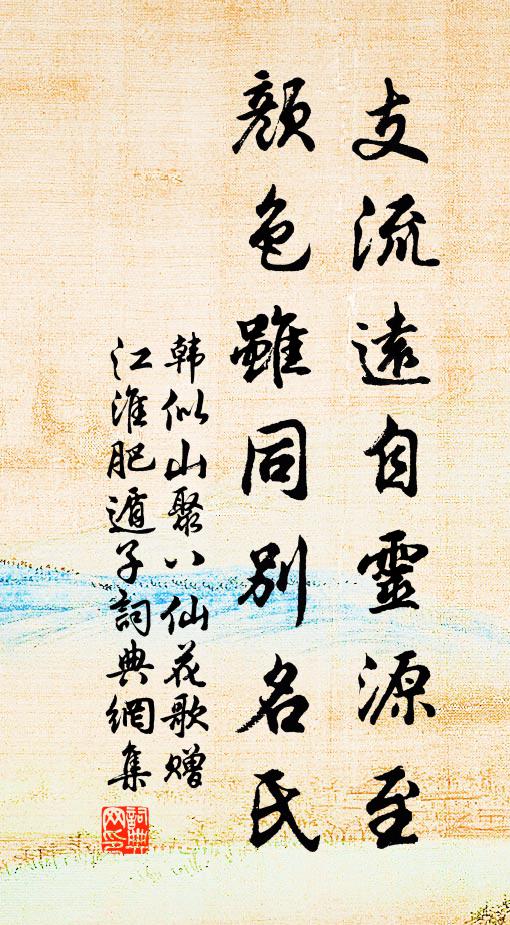 支流遠自靈源至
顏色雖同別名氏
韩似山聚八仙花歌赠
江淮肥遁子詞典網集
詞典网印